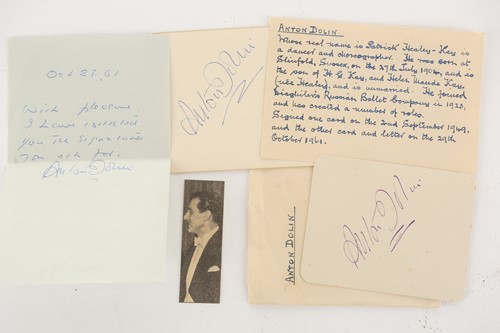 Oct 29, 61
With pleasure
I have
you the signatures
you ask for.
Anton Dolin
Anton Dolin
ANTON DOLIN
Whose real name is Patrick Healey-Kay is
a dancer and choreographer. He was born at
Slinfold, Sussex, on the 27th July 1904, and is
the son of H. G. Kay, and Helen Maude Kay,
(née Healey), and is unmarried. He joined
Diaghilev's Russian Ballet Company in 1923,
and has created a number of roles.
Signed one card on the 2nd September 1949,
and the other card and letter on the 29th
October 1961.
ANTON DOLIN
Anton Dolin